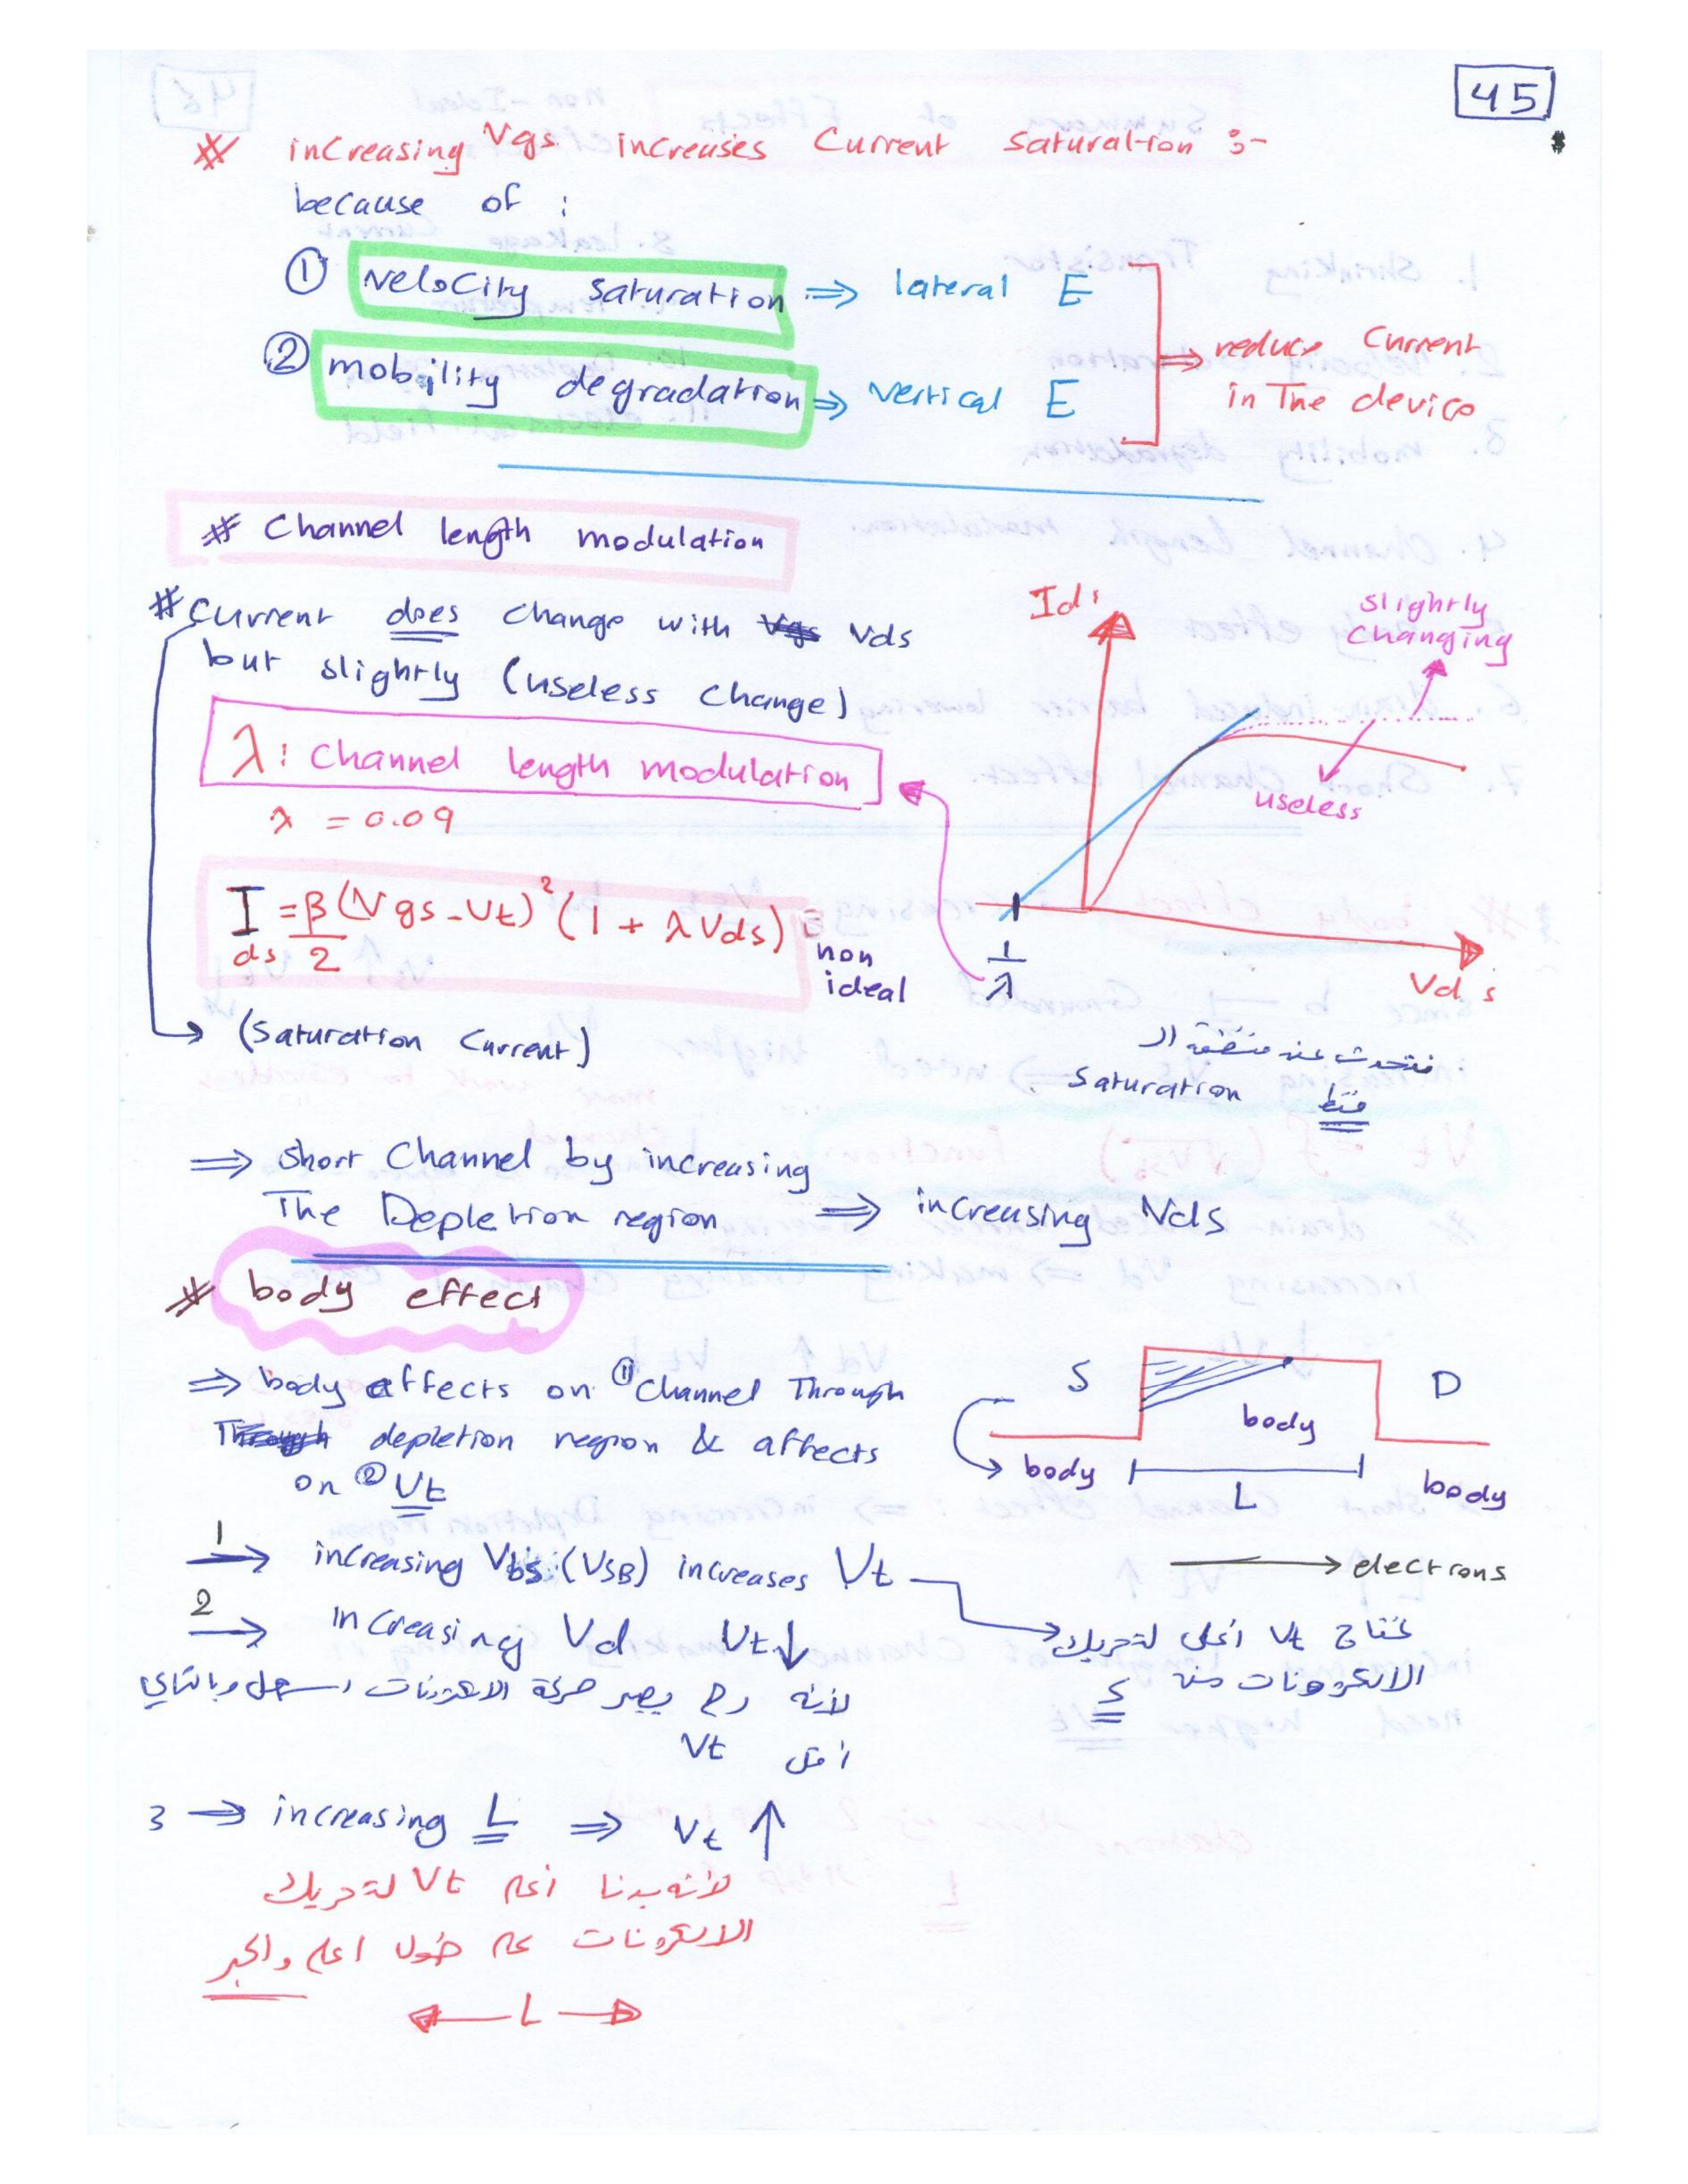 45
# increasing Vgs increases Current Saturation :-
because of :
① velocity saturation ⇒ lateral E
② mobility degradation ⇒ vertical E
→ reduce Current
in The device
# Channel length modulation
# Current does change with Vds
but slightly (useless change)
λ : Channel length modulation
λ = 0.09
Ids = β/2 (Vgs - Vt)² (1 + λVds) :
non
ideal
→ (Saturation Current)
Ids
slightly
changing
useless
1/λ
Vds
نتحدث عن منطقة ال
saturation فقط
⇒ short Channel by increasing
The Depletion region ⇒ increasing Vds
# body effect
⇒ body affects on ① Channel Through
depletion region & affects
on ② Vt
S
D
body
body
L
body
→ electrons
1 → increasing Vbs (VSB) increases Vt
نحتاج Vt أعلى لتحريك
الالكترونات من S
2 → increasing Vd Vt↓
لأنه رح يصير حركة الالكترونات اسهل وبالتالي
Vt أقل
3 → increasing L ⇒ Vt ↑
لأنه بدنا أعلى Vt لتحريك
الالكترونات على طول اعلى واكبر
← L →